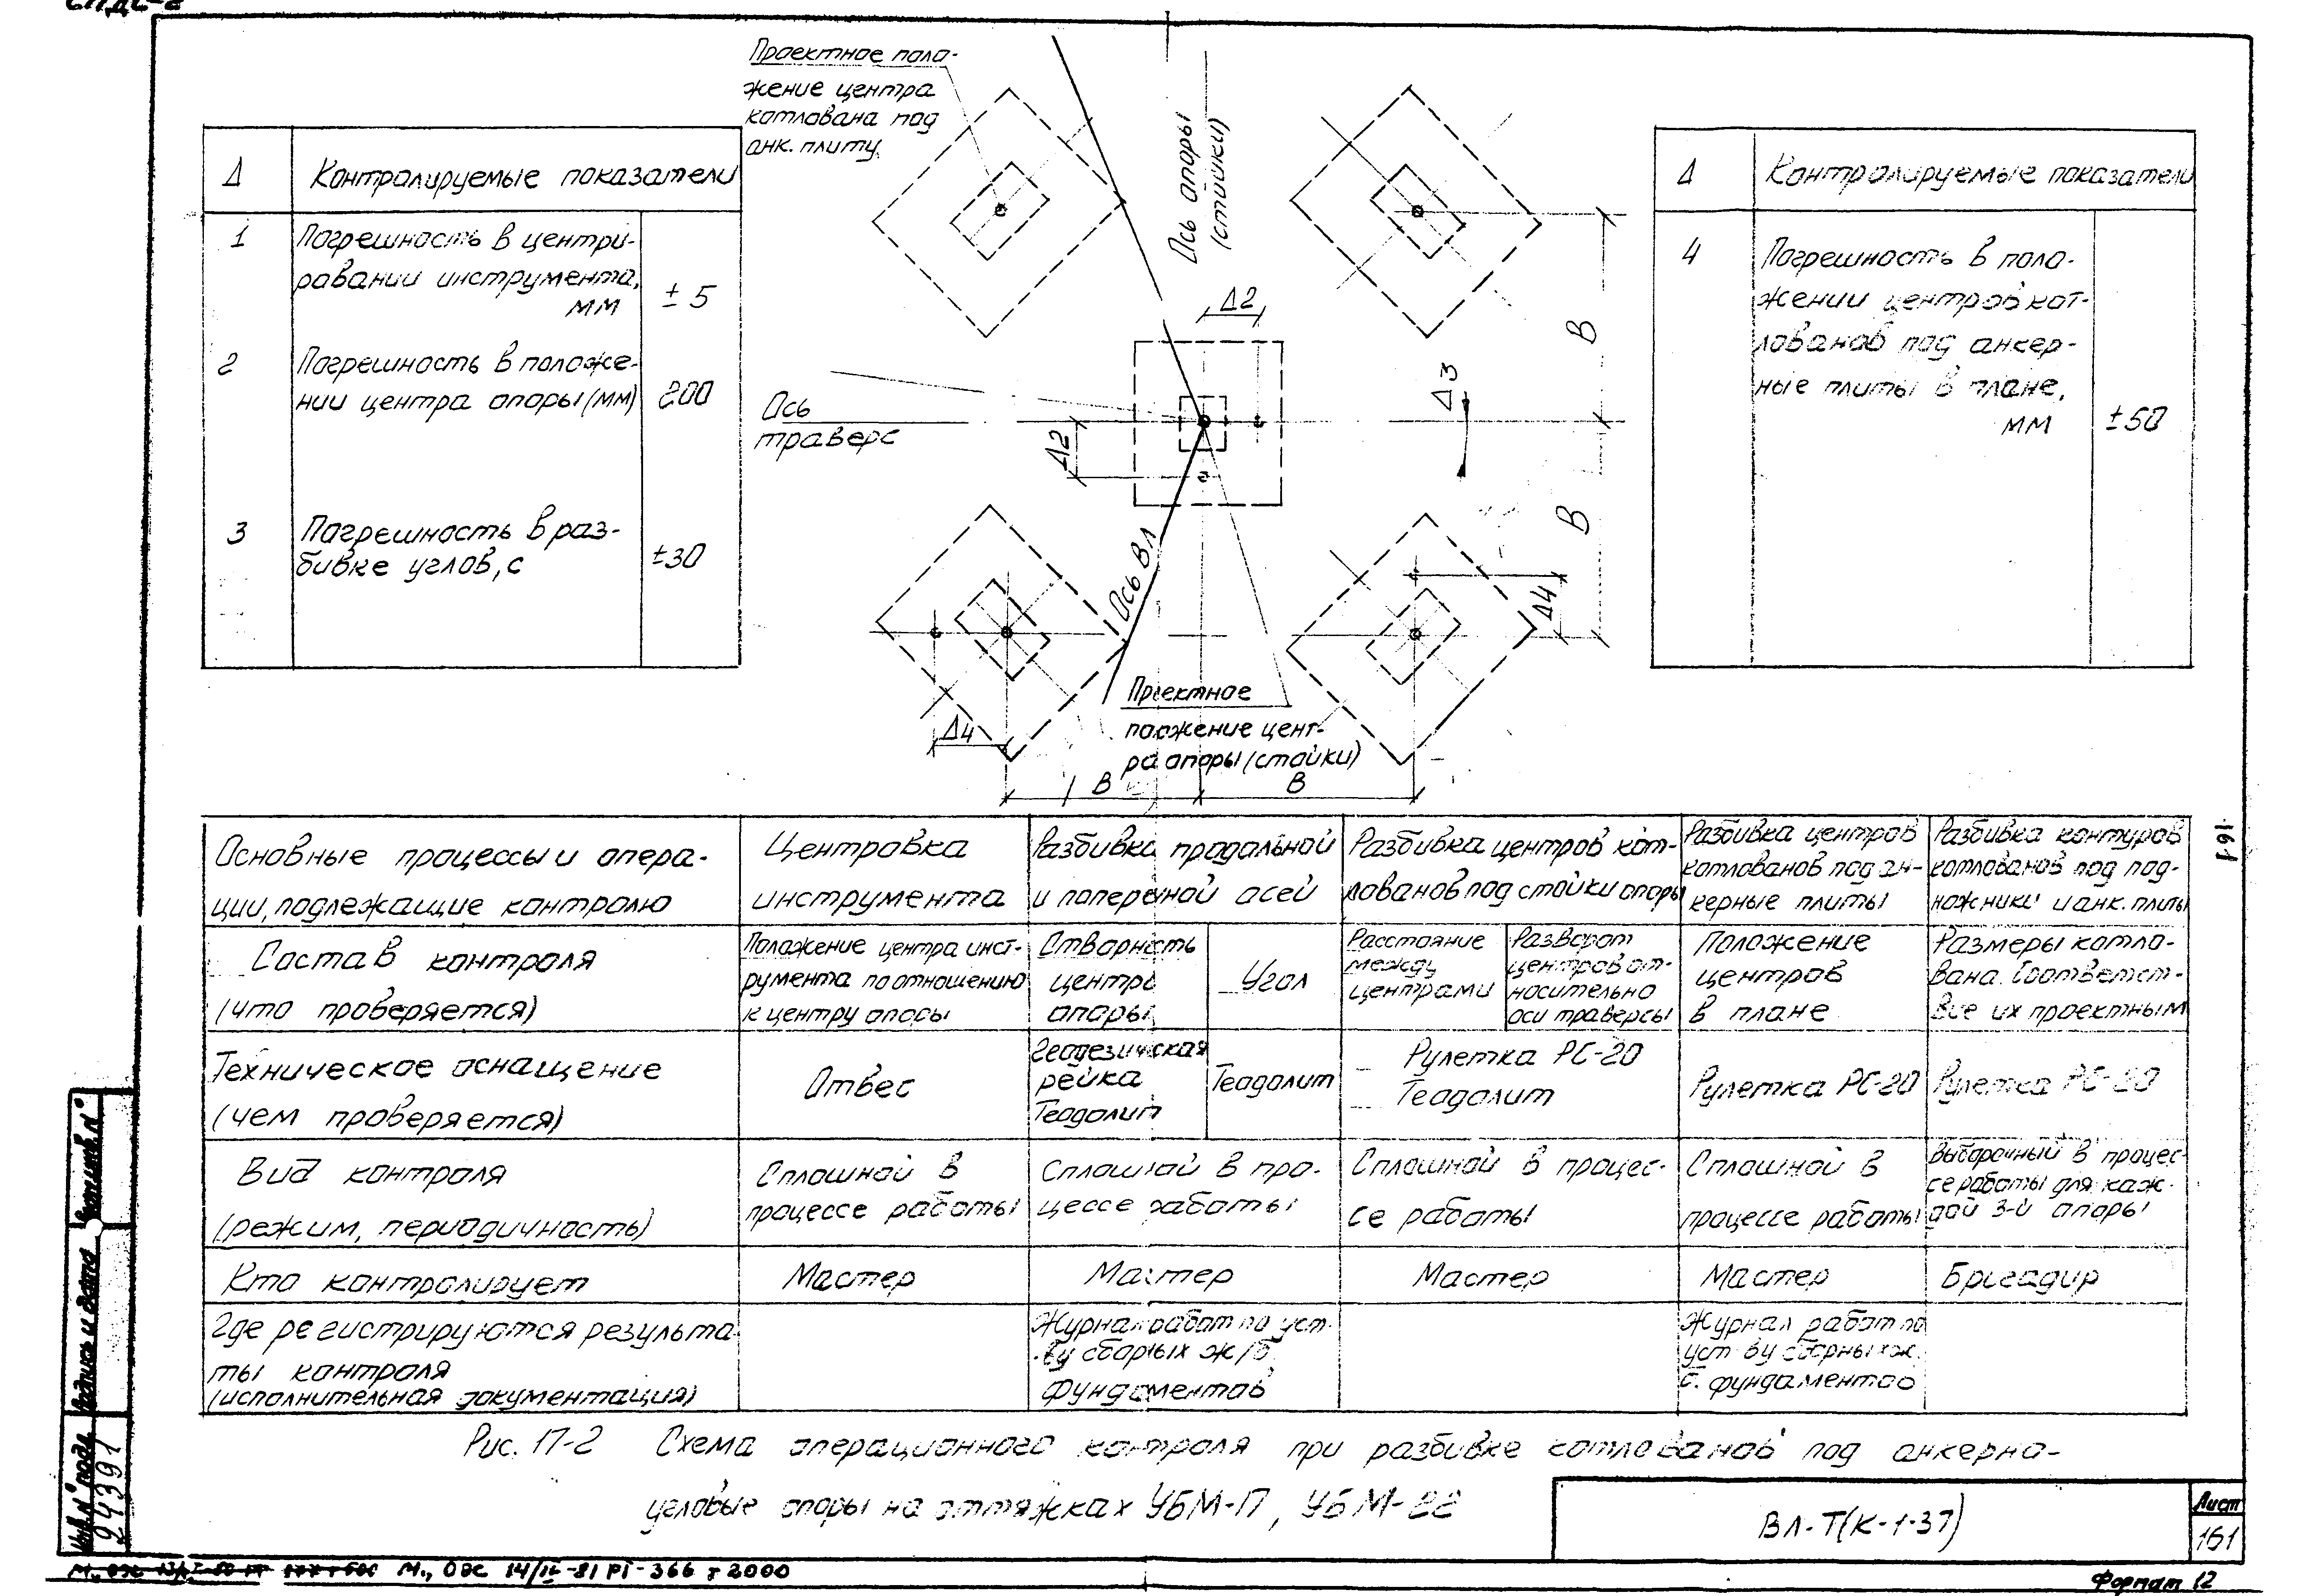 СПДС-2
Проектное поло-
жение центра
котлована под
анк. плиту
Ось опоры
(стойки)
Δ Контролируемые показатели
1 Погрешность в центри-
ровании инструмента,
мм ± 5
2 Погрешность в положе-
нии центра опоры (мм) 200
3 Погрешность в раз-
бивке углов, с ±30
Ось
траверс
Δ2
Δ2
Δ3
В
В
Ось Вл
Δ4
Δ4
Проектное
положение цент-
ра опоры (стойки)
В
В
Δ Контролируемые показатели
4 Погрешность в поло-
жении центров кот-
лованов под анкер-
ные плиты в плане,
мм ±50
161
Основные процессы и опера-
ции, подлежащие контролю
Центровка
инструмента
Разбивка продольной
и поперечной осей
Разбивка центров кот-
лованов под стойки опоры
Разбивка центров
котлованов под ан-
керные плиты
Разбивка контуров
котлованов под под-
ножники и анк. плиты
Состав контроля
(что проверяется)
Положение центра инст-
румента по отношению
к центру опоры
Створность
центра
опоры
Угол
Расстояние
между
центрами
Разворот
центров от-
носительно
оси траверсы
Положение
центров
в плане
Размеры котло-
вана. Соответст-
вие их проектным
Техническое оснащение
(чем проверяется)
Отвес
Геодезическая
рейка
Теодолит
Теодолит
Рулетка РС-20
Теодолит
Рулетка РС-20
Рулетка РС-20
Вид контроля
(режим, периодичность)
Сплошной в
процессе работы
Сплошной в про-
цессе работы
Сплошной в процес-
се работы
Сплошной в
процессе работы
Выборочный в процес-
се работы для каж-
дой 3-й опоры
Кто контролирует
Мастер
Мастер
Мастер
Мастер
Бригадир
Где регистрируются результа-
ты контроля
(исполнительная документация)
Журнал работ по уст-
ву сборных ж/б
фундаментов
Журнал работ по
уст-ву сборных ж.
б. фундаментов
Рис. 17-2 Схема операционного контроля при разбивке котлованов под анкерно-
угловые опоры на оттяжках УБМ-17, УБМ-22
ВЛ-Т(К-1-37)
Лист
161
Инв.N°подл.
24391
Подпись и дата
М., ОЭС 14/IV-81 РТ-366 т 2000
Формат 12